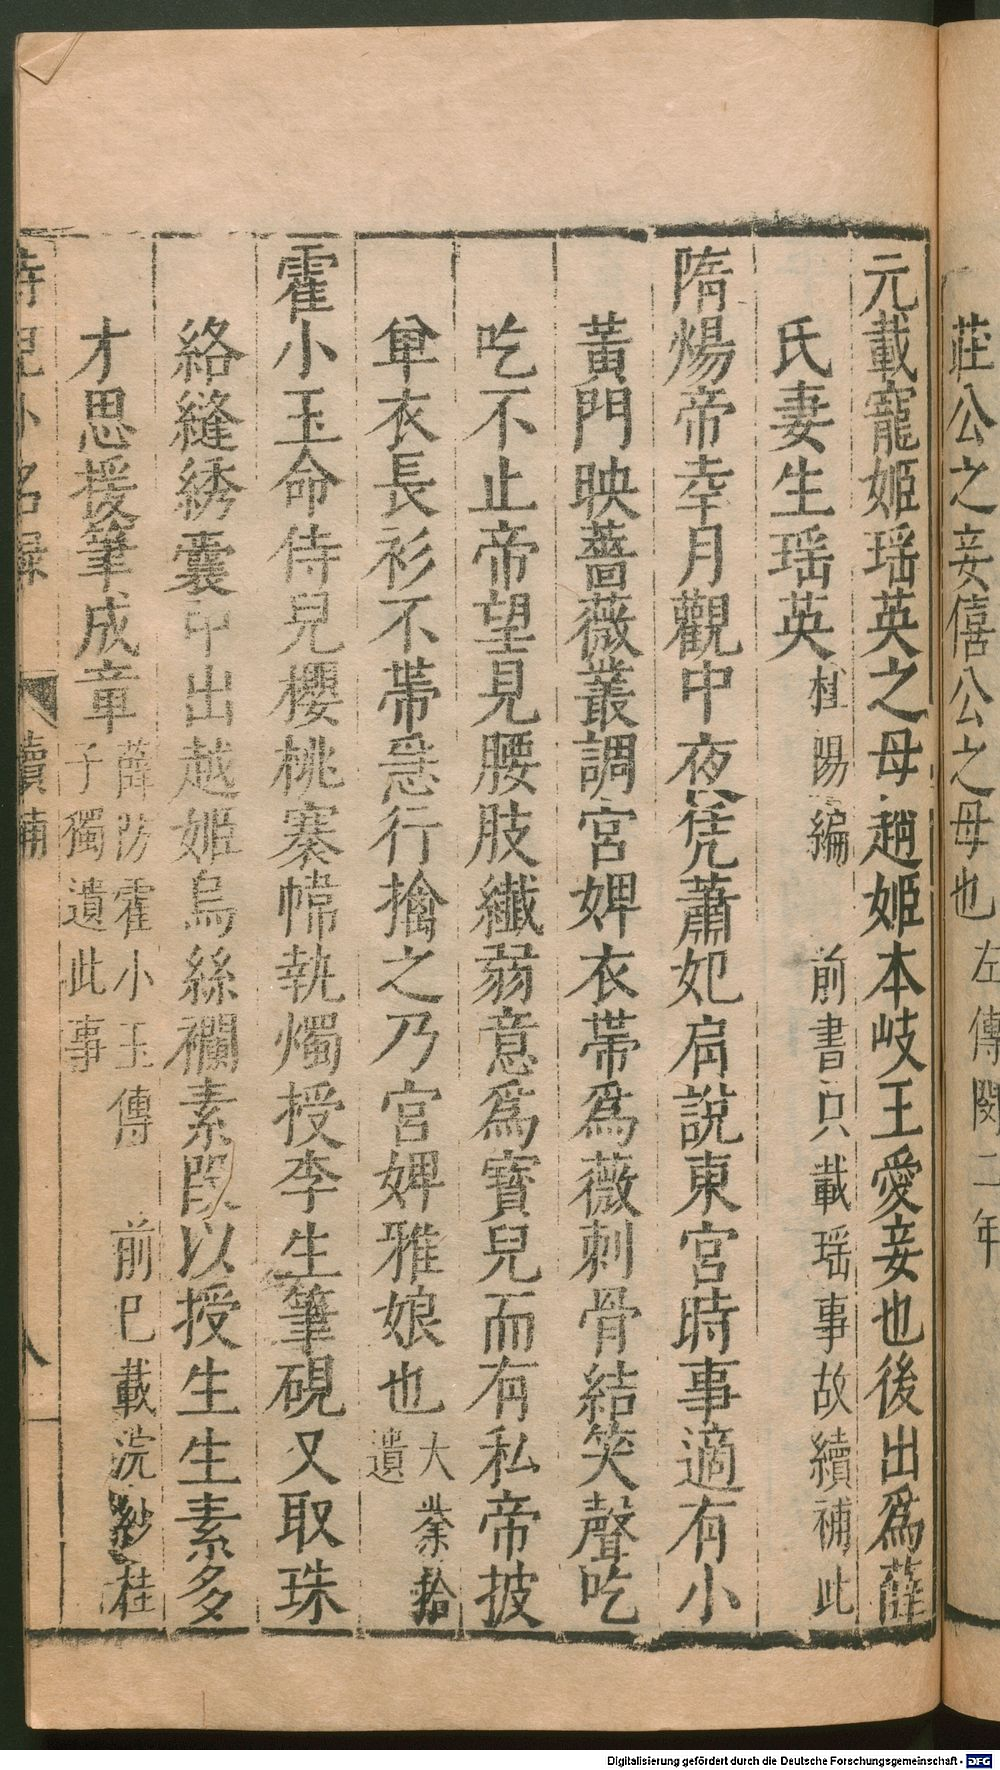 莊公之妾僖公之母也左傳閔二年
元載寵姬瑶英之母趙姬本岐王愛妾也後出爲薛
氏妻生瑶英桂陽編 前書只載瑶事故續補此
隋煬帝幸月觀中夜凭蕭妃肩說東宮時事適有小
黃門映薔薇叢調宮婢衣帶爲薇刺骨結笑聲吃
吃不止帝望見腰肢纖弱意爲寳兒而有私帝披
單衣長衫不帶急行擒之乃宮婢雅娘也大業拾
遺
霍小玉命侍兒櫻桃褰幃執燭授李生筆硯又取珠
絡縫綉囊中出越姬烏絲襴素段以授生生素多
才思援筆成章薛防霍小玉傳 前巳載浣紗桂
子獨遺此事
侍兒小名錄 續補 八
Digitalisierung gefördert durch die Deutsche Forschungsgemeinschaft - DFG